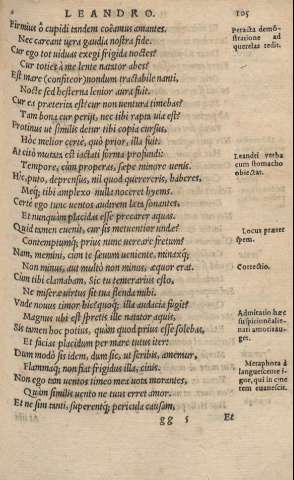 LEANDRO. 105
Firmius ô cupidi tandem coëamus amantes.
Nec careant vera gaudia nostra fide.
Cur ego tot viduas exegi frigida noctes?
Cur toties à me lente natator abes?
Est mare (confiteor) nondum tractabile nanti,
Nocte sed hesterna lenior aura fuit.
Cur ea præterita est? cur non ventura timebas?
Tam bona cur perijt, nec tibi rapta via est?
Protinus ut similis detur tibi copia cursus,
Hoc melior certè, quò prior, illa fuit.
At citò mutata est iactati forma profundi:
Tempore, cùm properas, sæpe minore venis.
Hîc, puto, deprensus, nil quod querereris, haberes,
Meq; tibi amplexo nulla noceret hyems.
Certè ego tunc ventos audirem læta sonantes,
Et nunquam placidas esse precarer aquas.
Quid tamen evenit, cur sis metuentior undæ?
Contemptumq; prius nunc vereare fretum?
Nam, memini, cum te sævum veniente, minaxq;
Non minus, aut multò non minus, æquor erat.
Cùm tibi clamabam, Sic tu temerarius esto,
Ne miseræ virtus sit tua flenda mihi.
Unde novus timor hic? quoq; illa audacia fugit?
Magnus ubi est spretis ille natator aquis,
Sis tamen hoc potius, quàm quod prius esse solebas,
Et facias placidum per mare tutus iter:
Dum modò sis idem, dum sic, ut scribis, amemur,
Flammaq; non fiat frigidus illa, cinis.
Non ego tam ventos timeo mea vota morantes,
Quàm similis vento ne tuus erret amor.
Et ne sim tanti, superentq; pericula causam,
gg 5 Et
Peracta demonstratione
ad
querelas redit.
Leandri verba
cum stomacho
obiectat.
Locus præter
spem.
Correctio.
Admiratio hæc
suspicionē alienati
amoris auget.
Metaphora à
languescente igne,
qui in cinetem
evanescit.